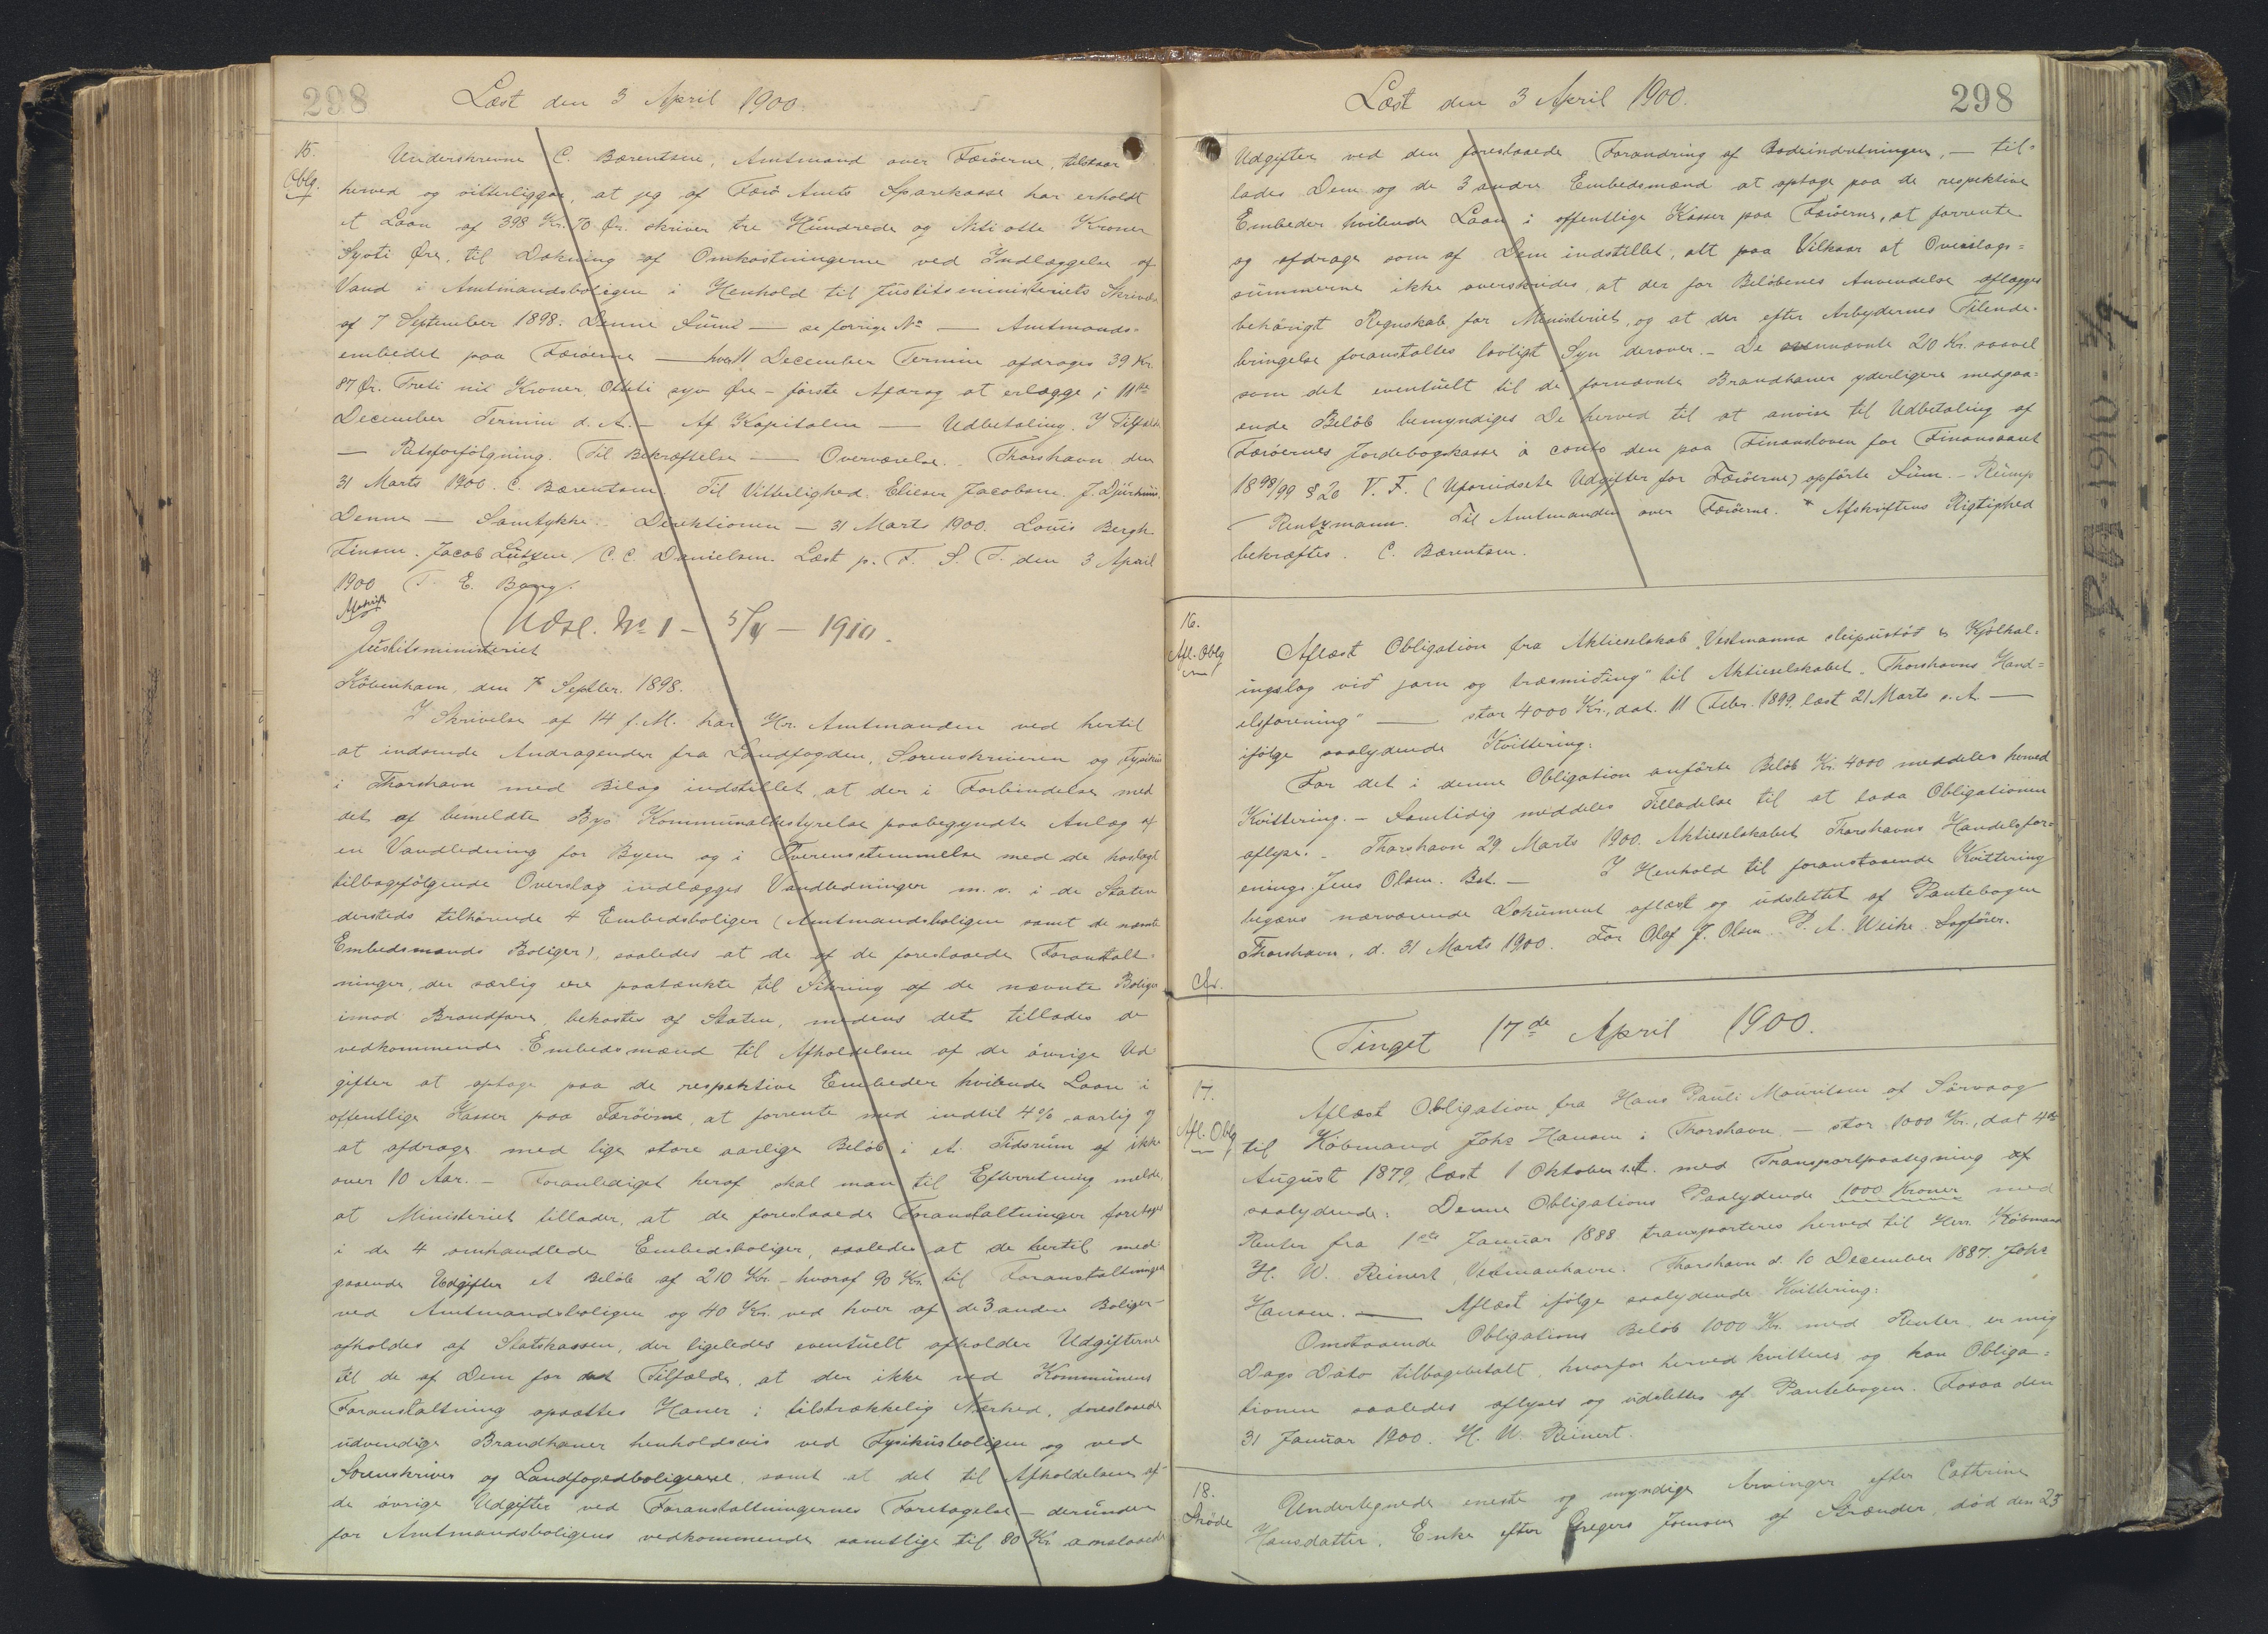 298
Læst den 3 April 1900.
15.
Oblg.
Underskrevne C. Bærentsen, Amtmand over Færöerne, tilstaar
herved og vitterliggör, at jeg af Færö Amts Sparekasse har erholdt
et Laan af 398 Kr. 70 Ør. skriver tre Hundrede og Niti otte Kroner
Syvti Øre, til Dækning af Omkostningerne ved Indlæggelse af
Vand i Amtmandsboligen i Henhold til Justitsministeriets Skrivelse
af 7 September 1898. Denne Sum — se forrige No — Amtmands-
embedet paa Færöerne — hver 11 December Termin afdrages 39 Kr.
87 Ør. Treti nie Kroner, Otteti syv Øre - förste Afdrag at erlægge i 11te
December Termin d. A. - Af Kapitalen — Udbetaling. I Tilfælde
— Retsforfölgning. Til Bekræftelse — Overværelse. Thorshavn den
31 Marts 1900. C. Bærentsen. Til Vitterlighed: Elieser Jacobsen. J. Djurhuus.
Denne — Samtykke. Direktionen — 31 Marts 1900. Louis Bergh.
Finsen. Jacob Lützen / C. C. Danielsen. Læst p. F. S. T. den 3 April
1900 T. E. Bang.
Udsl. No 1 - 5/4 - 1910.
Afskrift
Justitsministeriet
Köbenhavn, den 7 Septbr. 1898.
I Skrivelse af 14 f. M. har Hr. Amtmanden ved hertil
at indsende Andragender fra Landfogden, Sorenskriveren og Fysikus
i Thorshavn med Bilag indstillet, at der i Forbindelse med
det af bemeldte Bys Kommunalbestyrelse paabegyndte Anlæg af
en Vandledning for Byen og i Overensstemmelse med de hoslagt
tilbagefölgende Overslag indlægges Vandledninger m. v. i de Staten
dersteds tilhörende 4 Embedsboliger (Amtmandsboligen samt de nævnte
Embedsmænds Boliger), saaledes at de af de foreslaaede Foranstalt-
ninger, der særlig ere paatænkte til Sikring af de nævnte Boliger
imod Brandfare, bekostes af Staten, medens det tillades de
vedkommende Embedsmænd til Afholdelsen af de övrige Ud
gifter at optage paa de respektive Embeder hvilende Laan i
offentlige Kasser paa Færöerne, at forrente med indtil 4% aarlig og
at afdrage med lige store aarlige Belöb i et Tidsrum af ikke
over 10 Aar. - Foranlediget heraf skal man til Efterretning melde,
at Ministeriet tillader, at de foreslaaede Foranstaltninger foretages
i de 4 omhandlede Embedsboliger, saaledes at de hertil med
gaaende Udgifter et Belöb af 210 Kr. - hvoraf 90 Kr. til Foranstaltninger
ved Amtmandsboligen og 40 Kr. ved hver af de 3 andre Boliger -
afholdes af Statskassen, der ligeledes eventuelt afholder Udgifterne
til de af Dem for det Tilfælde, at der ikke ved Kommunens
Foranstaltning opsættes Haner i tilstrækkelig Nærhed, foreslaaede
udvendige Brandhaner henholdsvis ved Fysikusboligen og ved
Sorenskriver og Landfogedboligerne, samt at det til Afholdelsen af
de övrige Udgifter ved Foranstaltningernes Foretagelse - derunder
for Amtmandsboligens vedkommende samtlige til 80 Kr. anslaaede
Læst den 3 April 1900.
298
Udgifter ved den foreslaaede Forandring af Badeindretningen, - til-
lades Dem og de 3 andre Embedsmænd at optage paa de respektive
Embeder hvilende Laan i offentlige Kasser paa Færöerne, at forrente
og afdrage som af Dem indstillet, alt paa Vilkaar at Overslags-
summerne ikke overskrides, at der for Belöbenes Anvendelse aflægges
behörigt Regnskab for Ministeriet, og at der efter Arbejdernes Tilende-
bringelse foranstaltes lovligt Syn derover. - De ovennævnte 210 Kr. saavel
som det eventuelt til de fornævnte Brandhaner yderligere medgaa-
ende Belöb bemyndiges De herved til at anvise til Udbetaling af
Færöernes Jordebogskasse à conto den paa Finansloven for Finansaaret
1898/99 § 20 V. F. (Uforudsete Udgifter for Færöerne) opförte Sum. - Rump
Rentzmann. Til Amtmanden over Færöerne. Afskriftens Rigtighed
bekræftes. C. Bærentsen.
16.
Afl. Oblg
Aflæst Obligation fra Aktieselskab "Vestmanna sleipistöð & Kjölhal-
ingslag við jarn og træsmiðing" til Aktieselskabet "Thorshavns Hand-
elsforening" — stor 4000 Kr., dat. 11 Febr. 1899, læst 21 Marts s. A. —
ifölge saalydende Kvittering:
For det i denne Obligation anförte Belöb Kr. 4000 meddeles herved
Kvittering. - Samtidig meddeles Tilladelse til at lada Obligationen
aflyse. - Thorshavn 29 Marts 1900. Aktieselskabet Thorshavns Handelsfor-
enings. Jens Olsen. Bst. — I Henhold til foranstaaende Kvittering
begæres nærværende Dokument aflæst og udslettet af Pantebogen
Thorshavn, d. 31 Marts 1900. For Olaf J. Olsen. P. A. Weihe. Sagförer.
Tinget 17de April 1900.
17.
Afl. Oblg
Aflæst Obligation fra Hans Pauli Mouritsen af Sörvaag
til Köbmand Johs Hansen i Thorshavn - stor 1000 Kr., dat 4de
August 1879, læst 1 Oktober s. A. med Transportpaategning af
saalydende: Denne Obligations Paalydende 1000 Kroner med
Renter fra 1ste Januar 1888 transporteres herved til Herr Köbmand
H. W. Reinert, Vestmanhavn. Thorshavn d. 10 December 1887. Johs
Hansen. — Aflæst ifölge saalydende Kvittering:
Omstaaende Obligations Belöb 1000 Kr. med Renter er mig
Dags Dato tilbagebetalt, hvorfor herved kvitteres, og kan Obliga-
tionen saaledes aflyses og udslettes af Pantebogen. Fosaa den
31 Januar 1900. H. W. Reinert.
18.
Sköde
Undertegnede eneste og myndige Arvinger efter Cathrine
Hansdatter, Enke efter Gregers Joensen af Strænder, död den 23